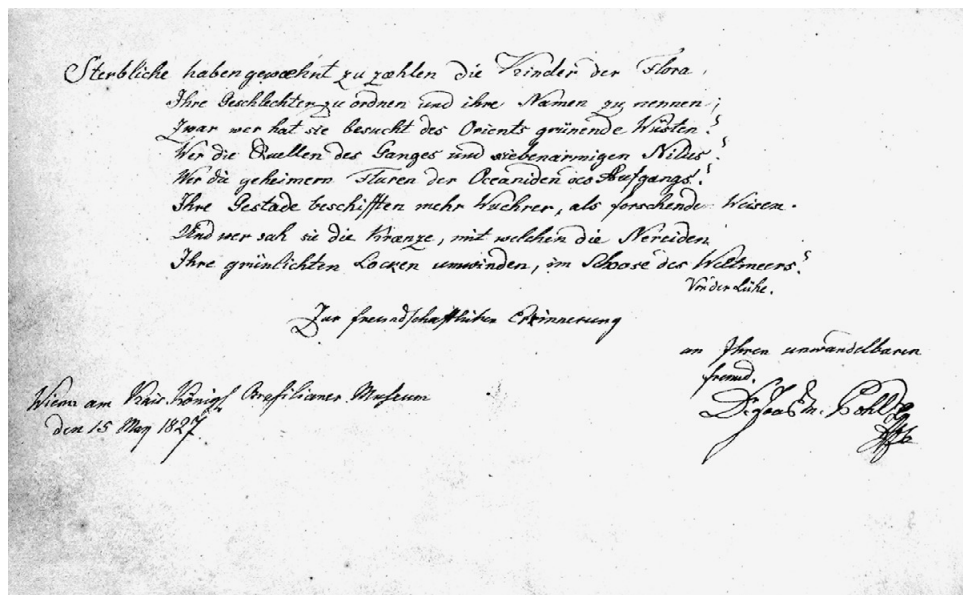 Sterbliche haben gewæhnt zu zæhlen die Kinder der Flora,
Ihre Geschlechter zu ordnen und ihre Namen zu nennen;
Zwar wer hat sie besucht des Orients grünende Wüsten?
Wer die Quellen des Ganges und siebenarmigen Nilus?
Wer die geheimern Fluren der Oceaniden des Aufgangs?
Ihre Gestade beschifften mehr Wuchrer, als forschende Weisen.
Und wer sah sie die Krænze, mit welchen die Nereiden
Ihre grünlichten Locken umwinden, im Schoose des Weltmeers?
Von der Lühe.
Zur freundschaftlichen Erinnerung
an Ihren unwandelbaren
freund.
Wien am Kais. Königl. Brasilianer Museum
den 15 May 1827.
Pohl